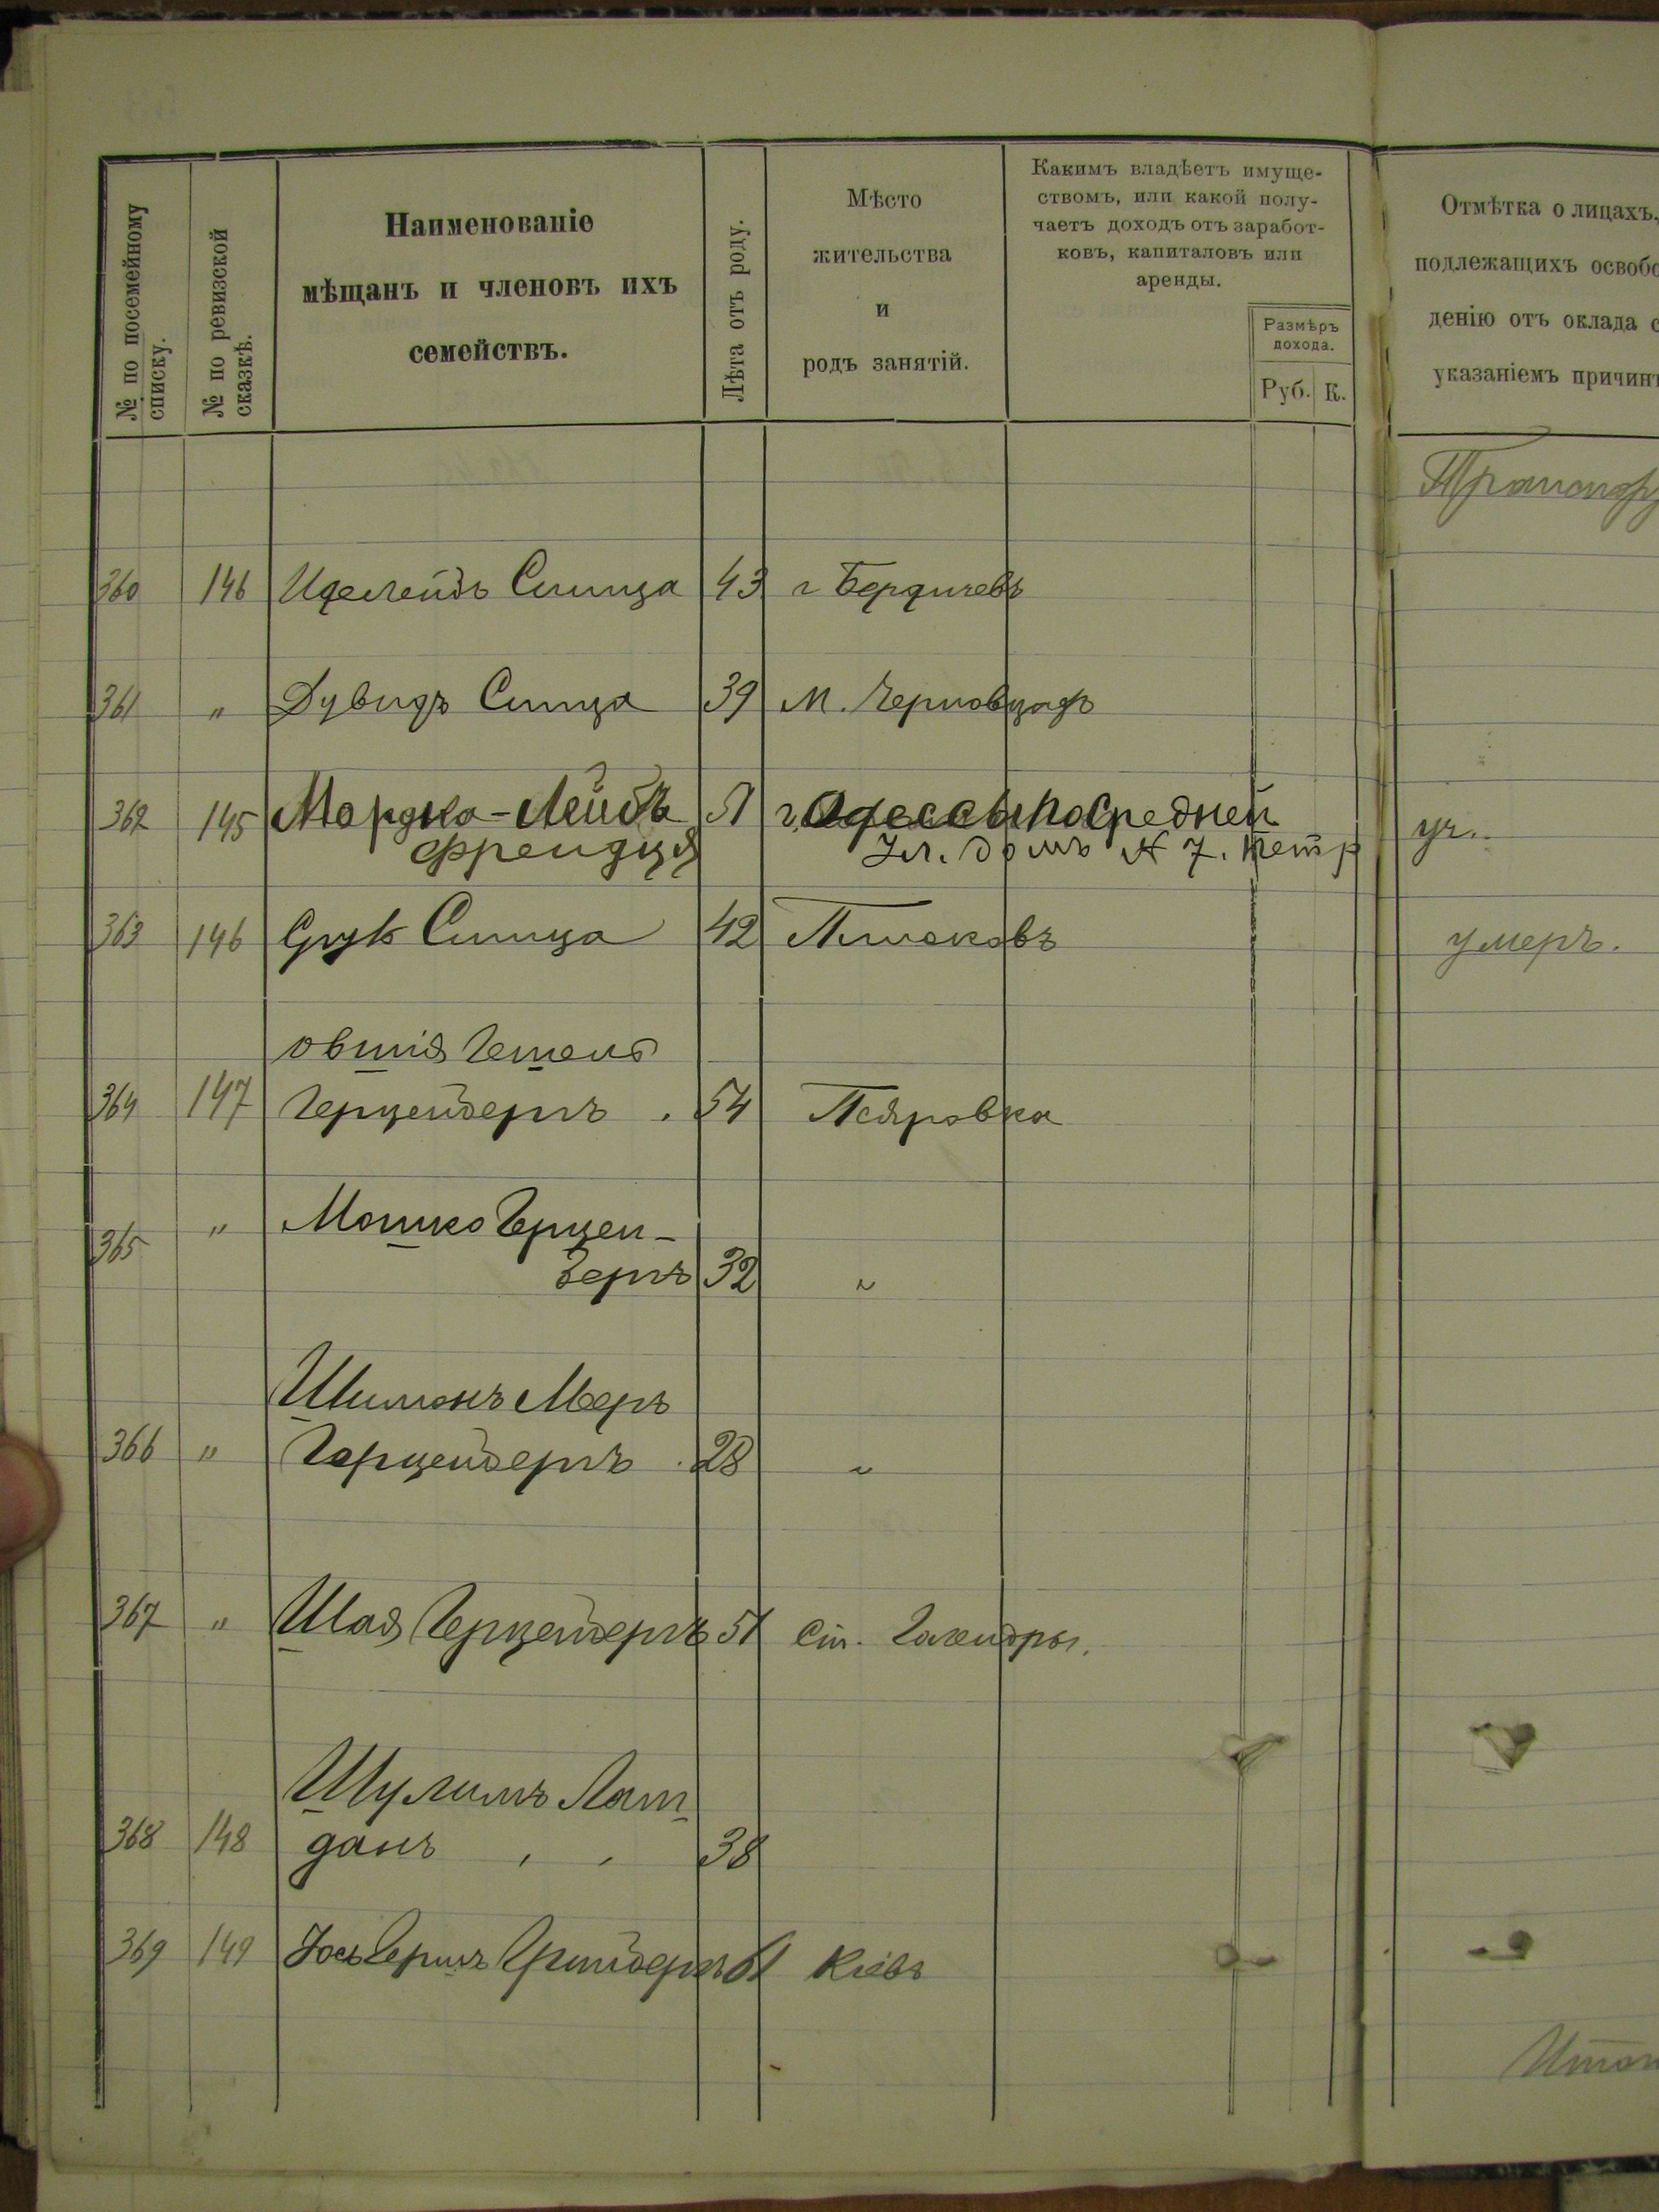 № по посемейному списку.
№ по ревизской сказкѣ.
Наименованіе
мѣщанъ и членовъ ихъ
семействъ.
Лѣта отъ роду.
Мѣсто
жительства
и
родъ занятій.
Какимъ владѣетъ имуще-
ствомъ, или какой полу-
чаетъ доходъ отъ заработ-
ковъ, капиталовъ или
аренды.
Размѣръ
дохода.
Руб. К.
Отмѣтка о лицахъ,
подлежащихъ освобо
денію отъ оклада с
указаніемъ причин
Транспор
360 146 Синица 43 г Бердичевъ
361 " Дувидъ Синица 39 м. Черновцахъ
362 145 Мордко-Лейбъ 51 г. Одессы по Средней
ул. домъ № 7. Петр
уч.
363 146 Синица 42 Пиковъ умеръ.
Овшія Гешель
364 147 Герценбергъ . 54
365 " Мошко Герцен-
бергъ 32 "
Шимонъ Меръ
366 " Герценбергъ . 28 "
367 " Шая Герценбергъ 51 ст. Голендры.
Шулимъ Лат
368 148 данъ 38
369 149 Іось Гершъ Гринбергъ 61 Кіевъ
Итог